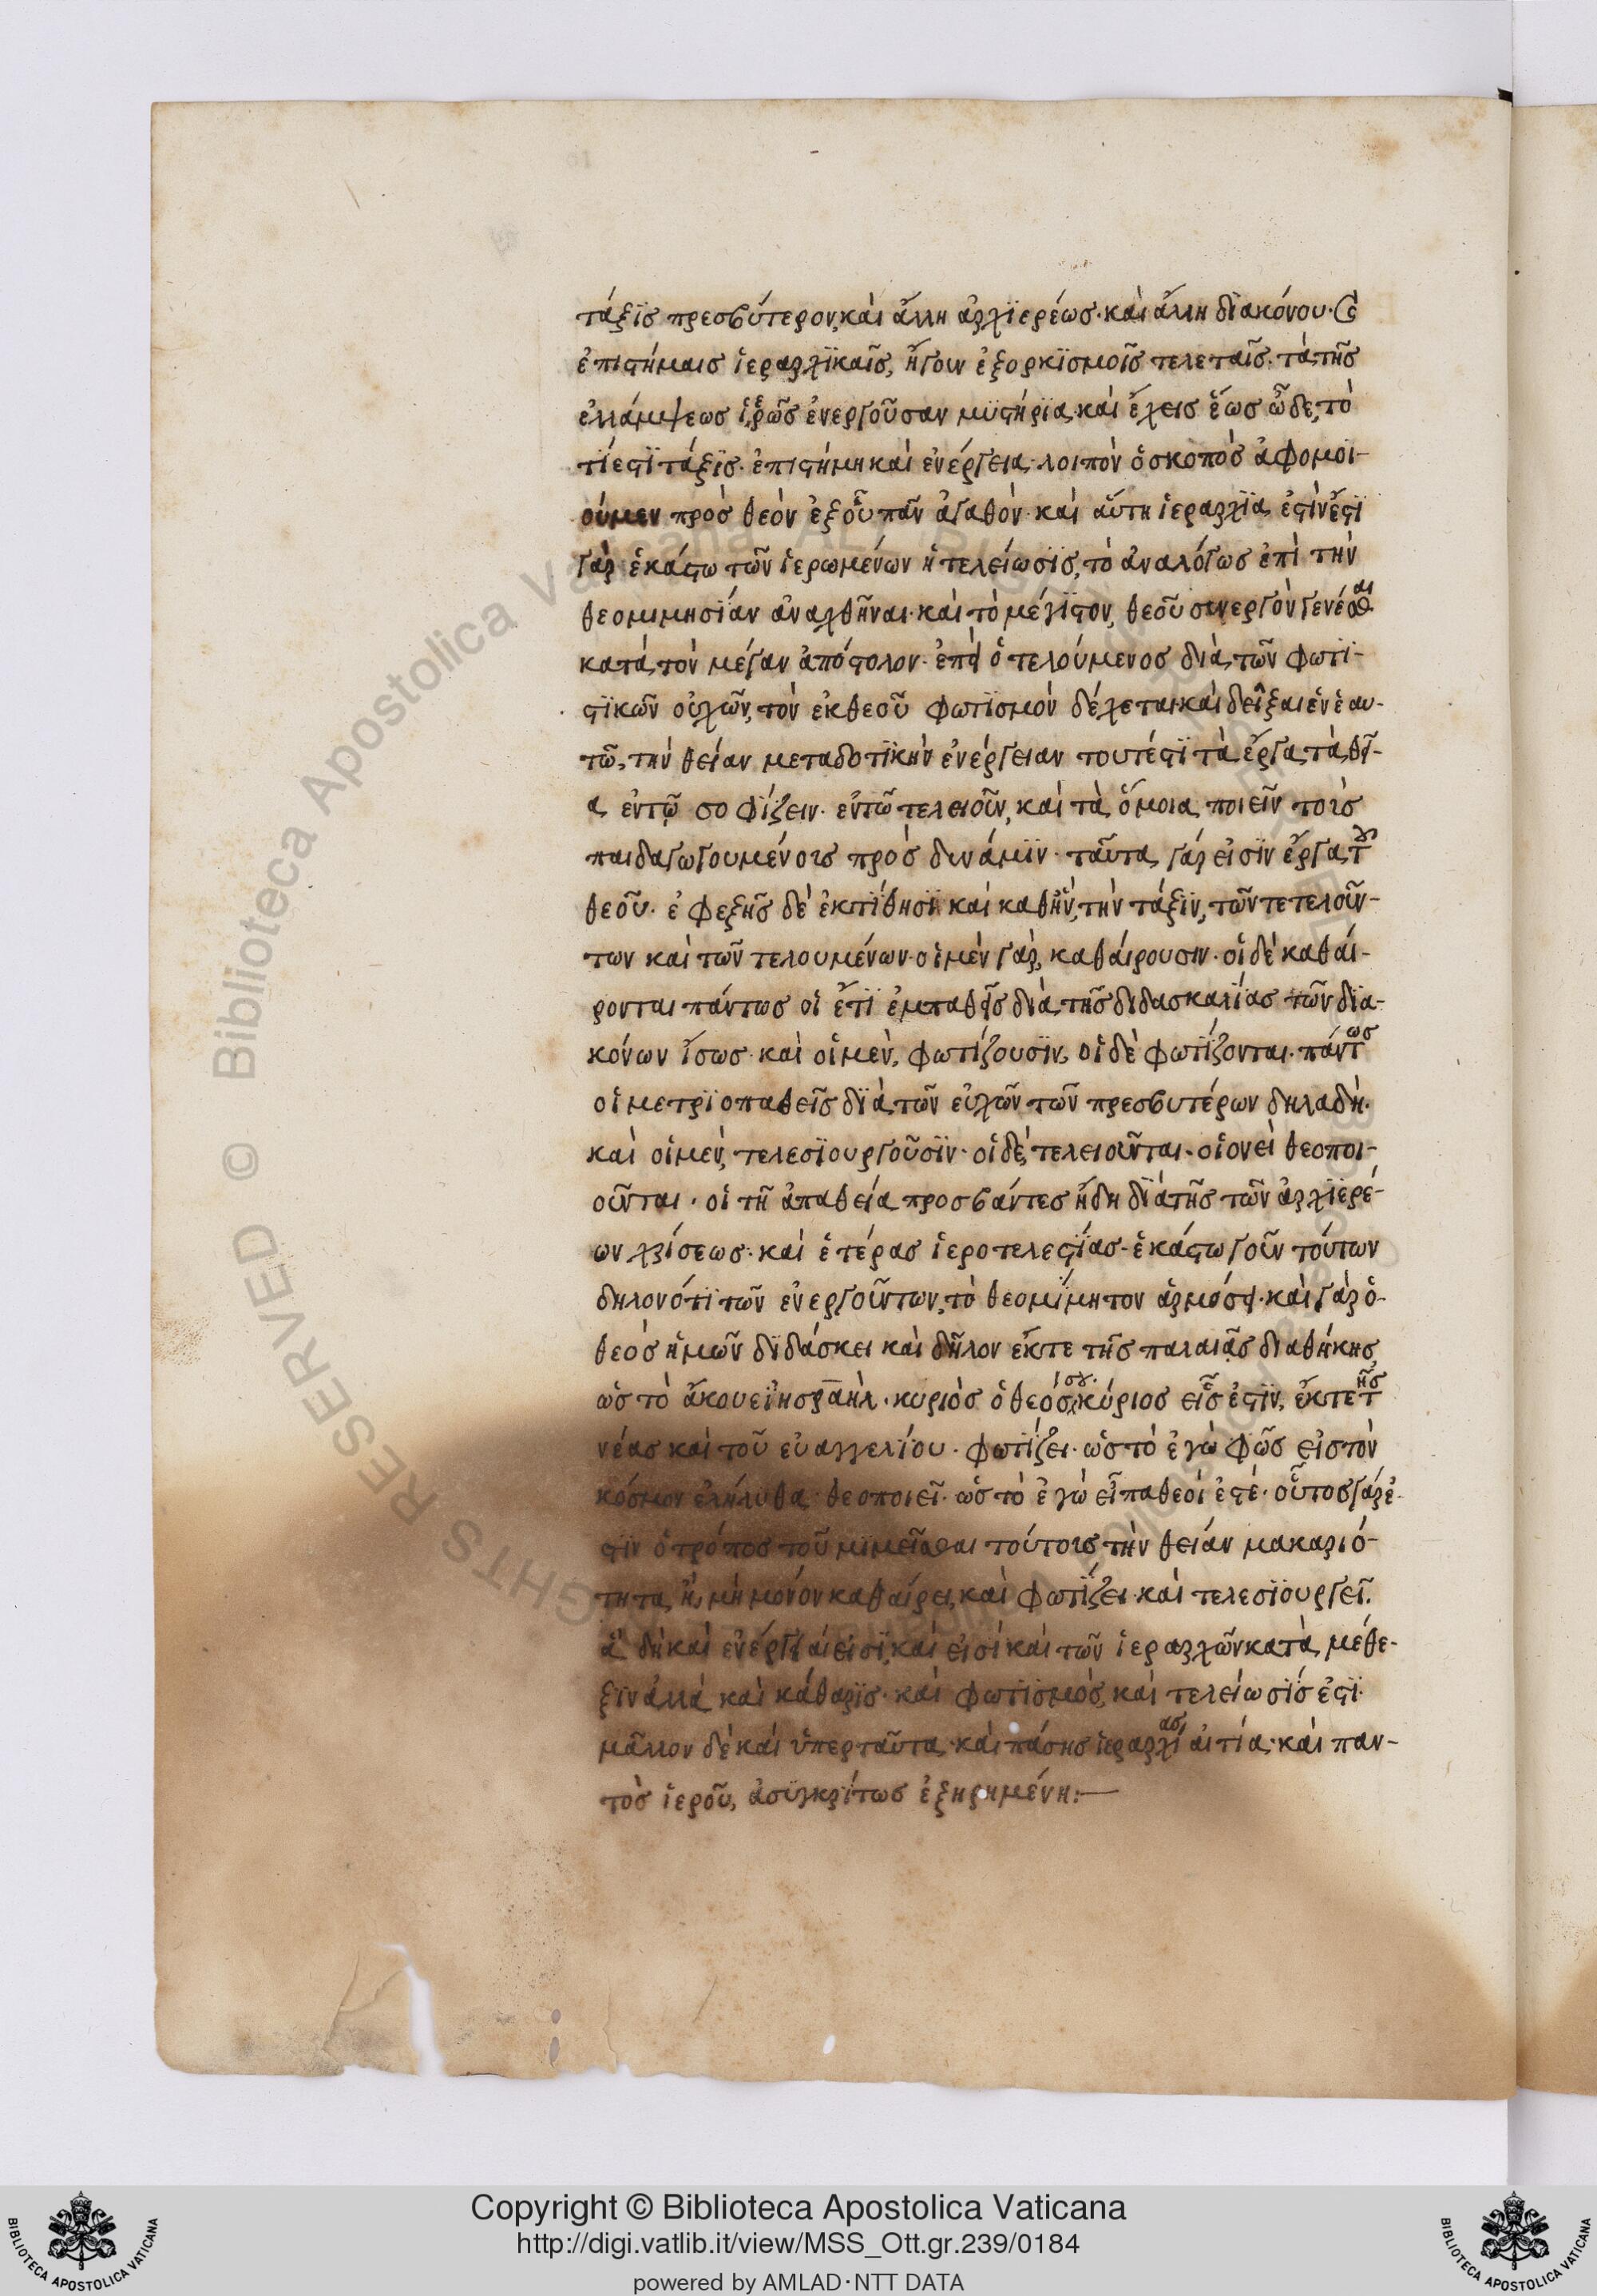 τάξϊς πρεσβύτερον, καὶ ἄλλη ἀρχϊερέως· καὶ ἄλλη διακόνου·
ἐπιστήμαις ἱεραρχϊκαῖς, ἤγουν ἐξορκϊσμοῖς τελεταῖς· τὰ τῆς
ἐλλάμψεως ἱερῶς ἐνεργοῦσαν μϋστήρϊα, καὶ ἔχεις ἕως ὧδε, τὸ
τίεστϊ τάξϊς· ἐπιστήμη καὶ ἐνέργεια· λοιπὸν ὁ σκοπὸς ἀφομοι-
ούμεν πρὸς θεὸν ἐξοὗ πᾶν ἀγαθὸν· καὶ αὕτη ἱεραρχϊα ἐστὶν ἔστϊ
γὰρ ἑκάστω τῶν ἱερωμένων ἡ τελείωσϊς, τὸ ἀναλόγως ἐπὶ τὴν
θεομιμησίαν ἀναχθῆναι· καὶ τὸ μέγϊστον, θεοῦ συνεργὸν γενέσθαι
κατὰ τὸν μέγαν ἀπόστολον· ἐπεὶ ὁ τελούμενος διὰ τῶν φωτϊ-
στϊκῶν οὐχῶν, τὸν ἐκθεοῦ φωτϊσμὸν δέχεται καὶ δεῖξαι ἐν ἑαυ-
τῶ, τὴν θείαν μεταδοτϊκὴν ἐνέργειαν τουτέστϊ τὰ ἔργα τὰ θεῖ-
α ἐντῷ σοφίζειν· ἐντῶ τελειοῦν, καὶ τὰ ὅμοια ποιεῖν τοῖς
παιδαγωγουμένοις πρὸς δυνάμϊν· ταῦτα γάρ εἰσϊν ἔργα τοῦ
θεοῦ· ἐφεξῆς δὲ ἐκτίθησϊ καὶ καθὴν, τὴν τάξϊν, τῶν τε τελοῦν-
των καὶ τῶν τελουμένων· οἱ μὲν γὰρ, καθαίρουσιν· οἱ δὲ καθαί-
ρονται πάντως οἱ ἔτϊ ἐμπαθεῖς διὰ τῆς διδασκαλίας τῶν δϊα-
κόνων ἴσως· καὶ οἱ μὲν, φωτίζουσϊν, οἱ δὲ φωτίζονται· πάντως
οἱ μετρϊοπαθεῖς δϊὰ τῶν εὐχῶν τῶν πρεσβυτέρων δηλαδή·
καὶ οἱ μὲν, τελεσϊουργοῦσϊν· οἱ δὲ, τελειοῦνται· οἱονεὶ θεοποι-
οῦνται· οἱ τῆ ἀπαθεία προσβάντες ἤδη δϊὰ τῆς τῶν ἀρχϊερέ-
ων χρίσεως· καὶ ἑτέρας ἱεροτελεστίας· ἑκάστω γοῦν τούτων
δηλονότϊ τῶν ἐνεργούντων, τὸ θεομίμητον ἁρμόσει· καὶ γὰρ ὁ
θεὸς ἡμῶν δϊδάσκει καὶ δῆλον ἔκτε τῆς παλαιᾶς διαθήκης
ὡς τὸ ἄκουε ἰησραηλ· κύριὸς ὁ θεός σου κύριος εἷς ἐστϊν, ἔκτε τῆς
νέας καὶ τοῦ εὐαγγελίου· φωτίζει· ὡς τὸ ἐγὼ φῶς εἰς τὸν
κόσμον ἐλήλυθα· θεοποιεῖ· ὡς τὸ ἐγὼ εἶπα θεοί ἐστέ· οὗτος γάρ ἐ-
στϊν ὁ τρόπος τοῦ μϊμεῖσθαι τούτοις τὴν θείαν μακαριό-
τητα, ἣ, μὴ μόνον καθαίρει, καὶ φωτίζει καὶ τελεσϊουργεῖ.
ἃ δὴ καὶ ἐνέργειαι εἰσϊ, καὶ εἰσὶ καὶ τῶν ἱεραρχῶν κατὰ μέθε-
ξϊν ἀλλὰ καὶ κάθαρϊς· καὶ φωτϊσμός, καὶ τελείωσίς ἐστϊ·
μᾶλλον δὲ καὶ ὑπερταῦτα, καὶ πάσης ἱεραρχίας αἰτία· καὶ παν-
τὸς ἱεροῦ, ἀσϋγκρίτως ἐξηρημένη:—
Copyright © Biblioteca Apostolica Vaticana
http://digi.vatlib.it/view/MSS_Ott.gr.239/0184
powered by AMLAD·NTT DATA